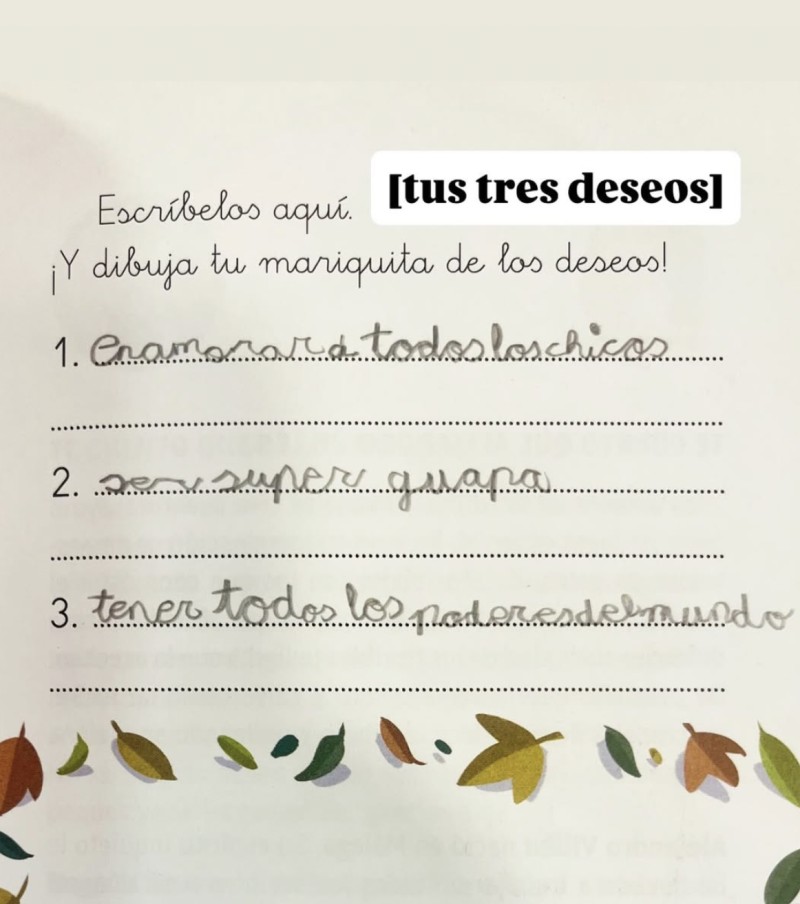 Escríbelos aquí. [tus tres deseos]
¡Y dibuja tu mariquita de los deseos!
1. enamorar a todos los chicos
2. ser super guapa
3. tener todos los poderes del mundo